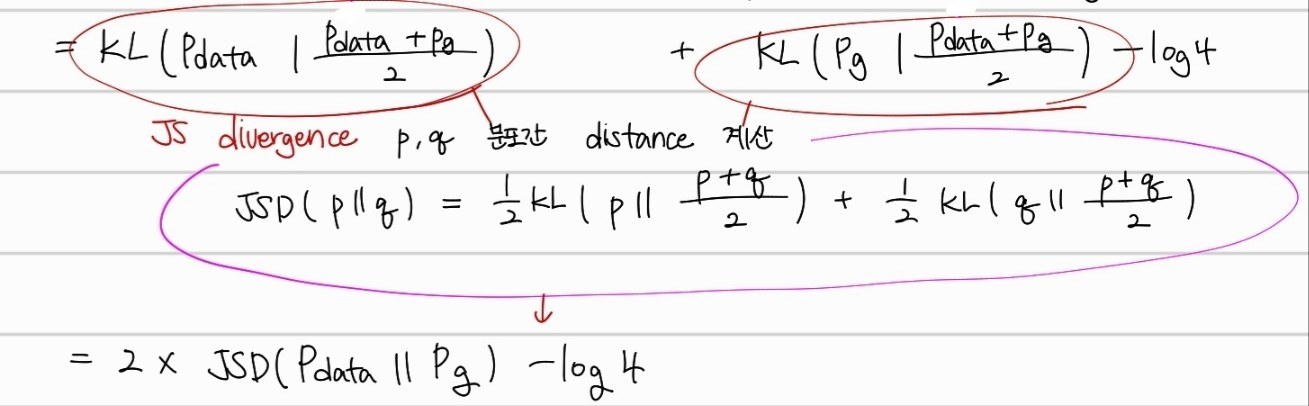 = KL(Pdata | Pdata + Pg / 2) + KL(Pg | Pdata + Pg / 2) - log 4
JS divergence p, q 분포간 distance 계산
JSD(p || q) = 1/2 KL(p || p+q / 2) + 1/2 KL(q || p+q / 2)
↓
= 2 × JSD(Pdata || Pg) - log 4